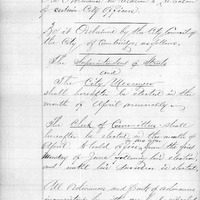 of certain City Officers.
Be it Ordained by the City Council of
the City of Cambridge as follows.
The Superintendent of Streets
and
The City Messenger
shall hereafter be elected in the
month of April annually.
The Clerk of Committees shall
hereafter be elected in the month of
April to hold office from the first
Monday of June following his election
and until his successor is elected.
All Ordinances and parts of ordinances